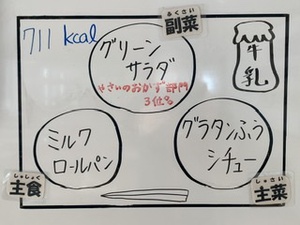 711 kcal
ふくさい
副菜
グリーン
サラダ
やさいのおかず部門
3位
牛
乳
ミルク
ロールパン
グラタンふう
シチュー
しゅしょく
主食
しゅさい
主菜